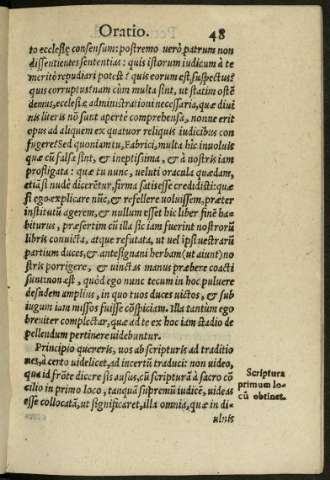 Oratio. 48
to ecclesię consensum: postremo uerò patrum non
dissentientes sententias: quis istorum iudicum à te
meritò repudiari potest? quis eorum est suspectus?
quis corruptus? nam cùm multa sint, ut statim ostẽ
demus, ecclesiæ administrationi necessaria, quæ diui
nis literis nõ sunt apertè comprehensa, nonne erit
opus ad aliquem ex quatuor reliquis iudicibus con
fugere? Sed quoniam tu, Fabrici, multa hic inuoluis
quæ cũ falsa sint, & ineptissima, & à nostris iam
profligata: quæ tu nunc, ueluti oracula quædam,
etiã si nudè dicerẽtur, firma satis esse credidisti: quæ
si ego explicare nũc, & refellere uoluissem, præter
institutũ agerem, & nullum esset hic liber finẽ ha-
biturus, præsertim cũ illa sic iam fuerint nostrorũ
libris conuicta, atque refutata, ut uel ipsi uestrarũ
partium duces, & antesignani herbam (ut aiunt) no
stris porrigere, & uinctas manus præbere coacti
sunt: non est, quòd ego nunc tecum in hoc puluere
desudem amplius, in quo tuos duces uictos, & sub
iugum iam missos fuisse cõspiciam. Illa tantùm ego
breuiter complectar, quæ ad te ex hoc iam stadio de
pellendum pertinere uidebuntur.
Principio quereris, nos ab scripturis ad traditio
nes, à certo uidelicet, ad incertũ traduci: non uideo,
qua id frõte dicere sis ausus, cũ scripturã à sacro cõ
cilio in primo loco, tanquã supremũ iudicẽ, uideas
esse collocatã, ut significaret, illa omnia, quæ in di-
uinis
Scriptura
primum lo-
cũ obtinet.